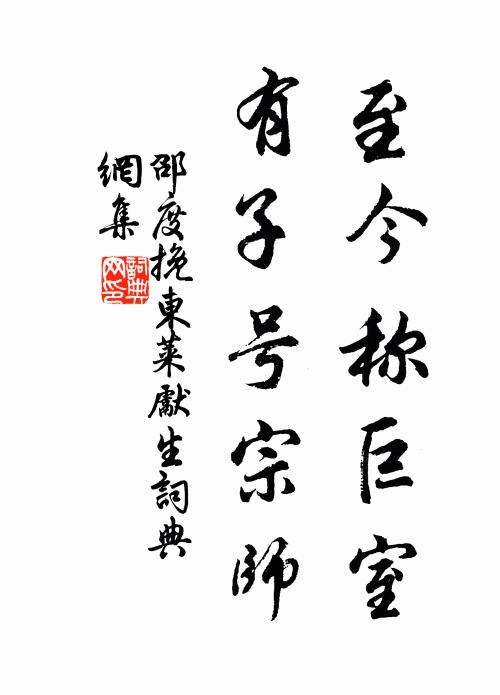 至今称巨室
有子号宗師
邵度挽東萊獻生詞典
網集
詞典
网印